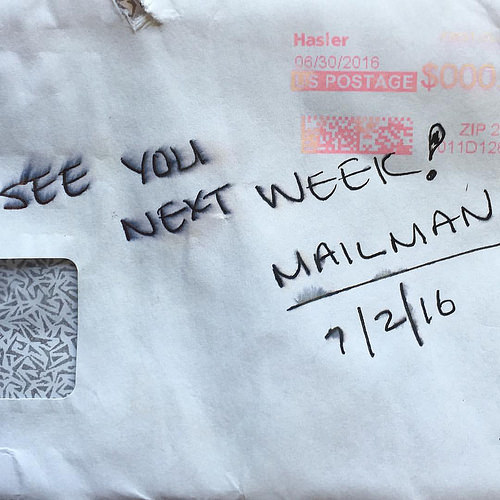 Hasler
06/30/2016
US POSTAGE $000
ZIP 2
011D12
SEE YOU
NEXT WEEK!
MAILMAN
7/2/16